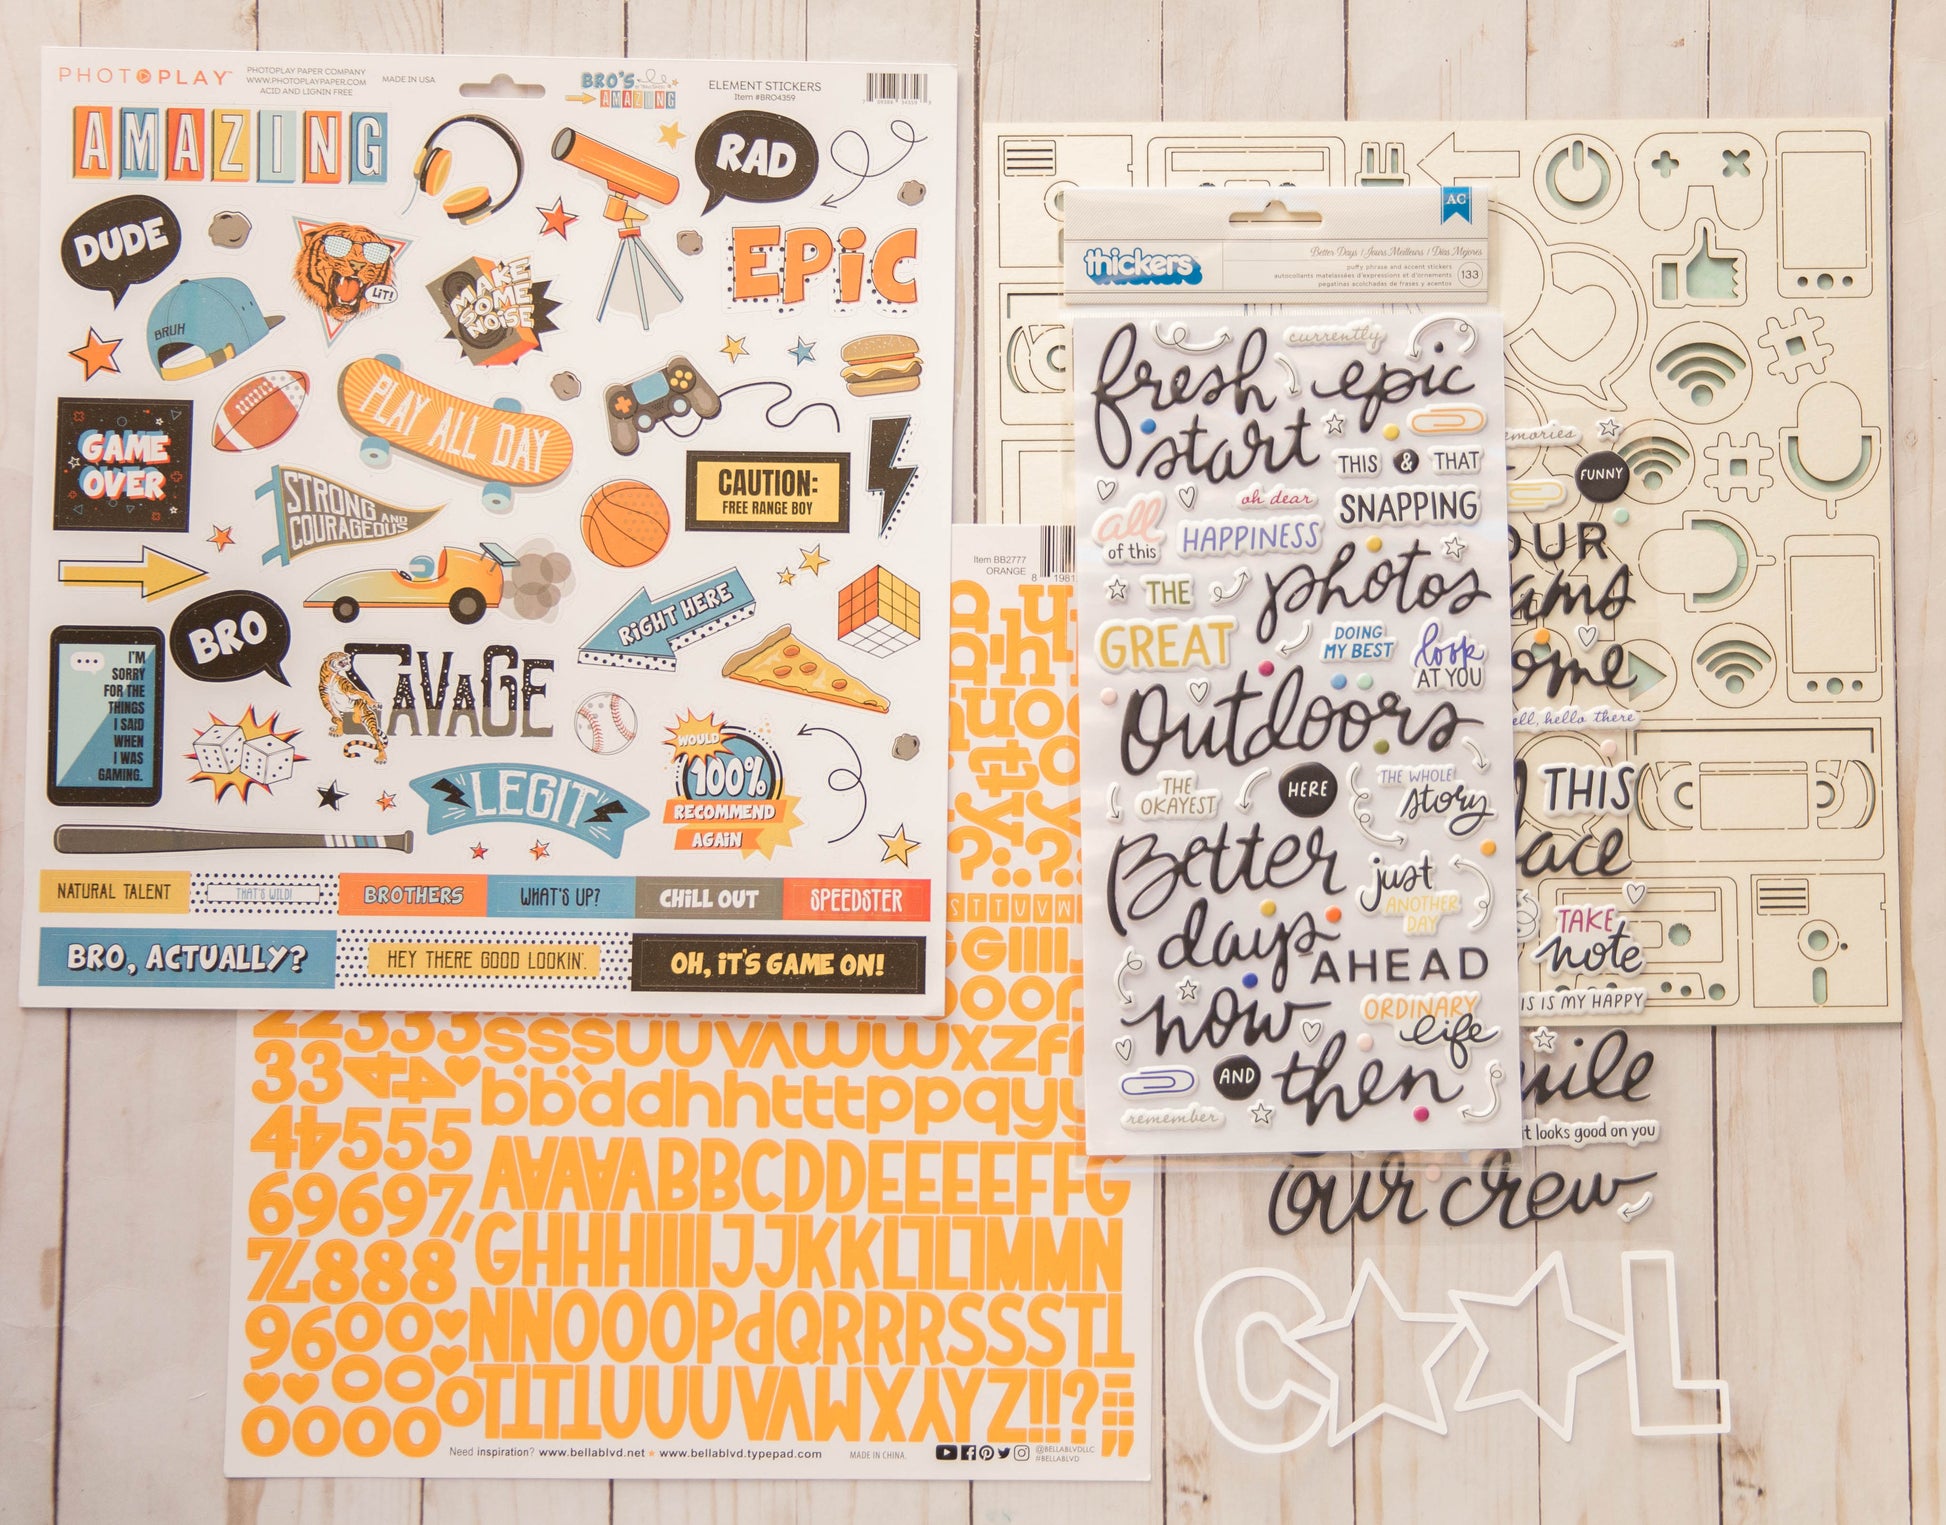 PHOTOPLAY
PHOTOPLAY PAPER COMPANY
WWW.PHOTOPLAYPAPER.COM
ACID AND LIGNIN FREE
MADE IN USA
BRO'S
AMAZING
ELEMENT STICKERS
Item #BRO4359
AMAZING
RAD
DUDE
LIT!
MAKE
SOME
NOISE
EPIC
BRUH
PLAY ALL DAY
GAME
OVER
STRONG AND
COURAGEOUS
CAUTION:
FREE RANGE BOY
BRO
RIGHT HERE
I'M
SORRY
FOR THE
THINGS
I SAID
WHEN
I WAS
GAMING.
SAVAGE
WOULD
100%
RECOMMEND
AGAIN
LEGIT
NATURAL TALENT
THAT'S WILD!
BROTHERS
WHAT'S UP?
CHILL OUT
SPEEDSTER
BRO, ACTUALLY?
HEY THERE GOOD LOOKIN'.
OH, IT'S GAME ON!
Item BB2777
ORANGE
8 1981
33
45555
69697,
7L888
9600
00
0000
sssuuvawwxzf
bbddhhtttppqyy
AAAAABBCDDEEEEFFG
GHHHIIIIJJJKKLLLMMN
NNOOOPdQRRRSSSTT
TTTTUUUVAMXYYZ!!?
Need inspiration? www.bellablvd.net ★ www.bellablvd.typepad.com
MADE IN CHINA.
@BELLABLVDLLC
#BELLABLVD
AC
thickers
Better Days | Jours Meilleurs | Días Mejores
puffy phrase and accent stickers
autocollants matelassées d'expressions et d'ornements
pegatinas acolchadas de frases y acentos
133
currently
fresh
start
epic
THIS & THAT
all
of this
oh dear
HAPPINESS
SNAPPING
photos
THE
GREAT
DOING
MY BEST
look
AT YOU
outdoors
THE
OKAYEST
HERE
THE WHOLE
story
Better
days
AHEAD
just
ANOTHER
DAY
now
AND
then
ORDINARY
life
remember
FUNNY
OUR
ell, hello there
THIS
TAKE
note
IS IS MY HAPPY
it looks good on you
our crew
C★★L